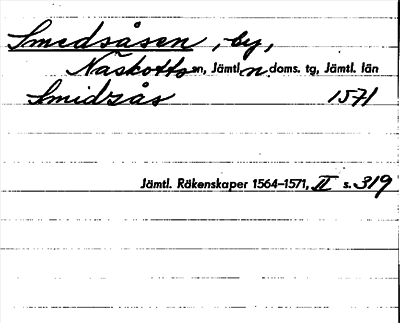 Smedsåsen, by,
Näskotts sn, Jämtl. n. doms. tg, Jämtl. län
Smidzås 1571
Jämtl. Räkenskaper 1564–1571, II s. 319